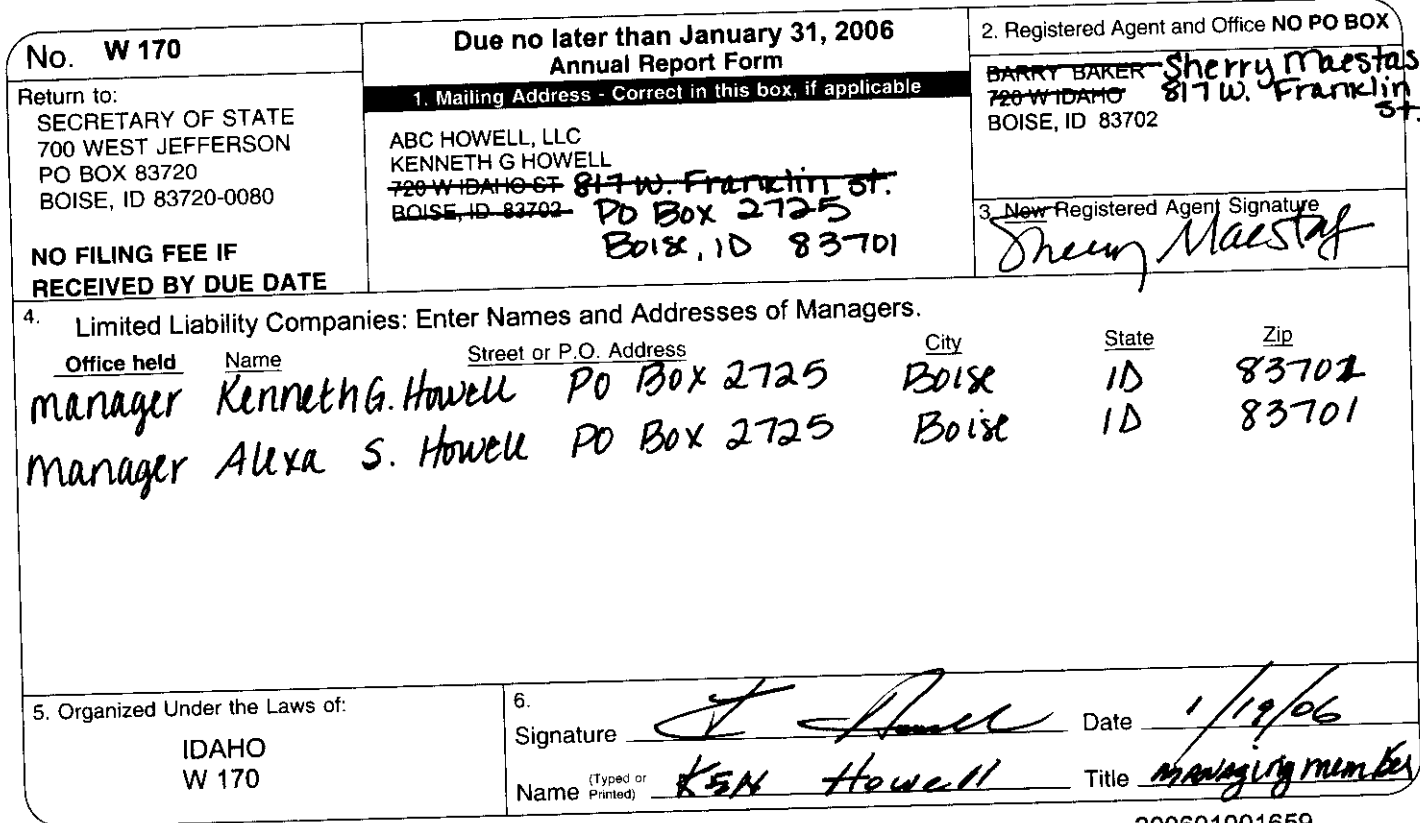 No. W 170
Return to:
SECRETARY OF STATE
700 WEST JEFFERSON
PO BOX 83720
BOISE, ID 83720-0080
NO FILING FEE IF
RECEIVED BY DUE DATE
Due no later than January 31, 2006
Annual Report Form
1. Mailing Address - Correct in this box, if applicable
ABC HOWELL, LLC
KENNETH G HOWELL
720 W IDAHO ST 817 W. Franklin St.
BOISE, ID 83702 PO Box 2725
Boise, ID 83701
2. Registered Agent and Office NO PO BOX
BARRY BAKER Sherry Maestas
720 W IDAHO 817 W. Franklin
St.
BOISE, ID 83702
3. New Registered Agent Signature
Sherry Maestas
4. Limited Liability Companies: Enter Names and Addresses of Managers.
Office held Name Street or P.O. Address City State Zip
manager Kenneth G. Howell PO Box 2725 Boise ID 83701
manager Alexa S. Howell PO Box 2725 Boise ID 83701
5. Organized Under the Laws of:
IDAHO
W 170
6.
Signature Howell Date 1/19/06
Name (Typed or Printed) KEN Howell Title managing member
200601001659